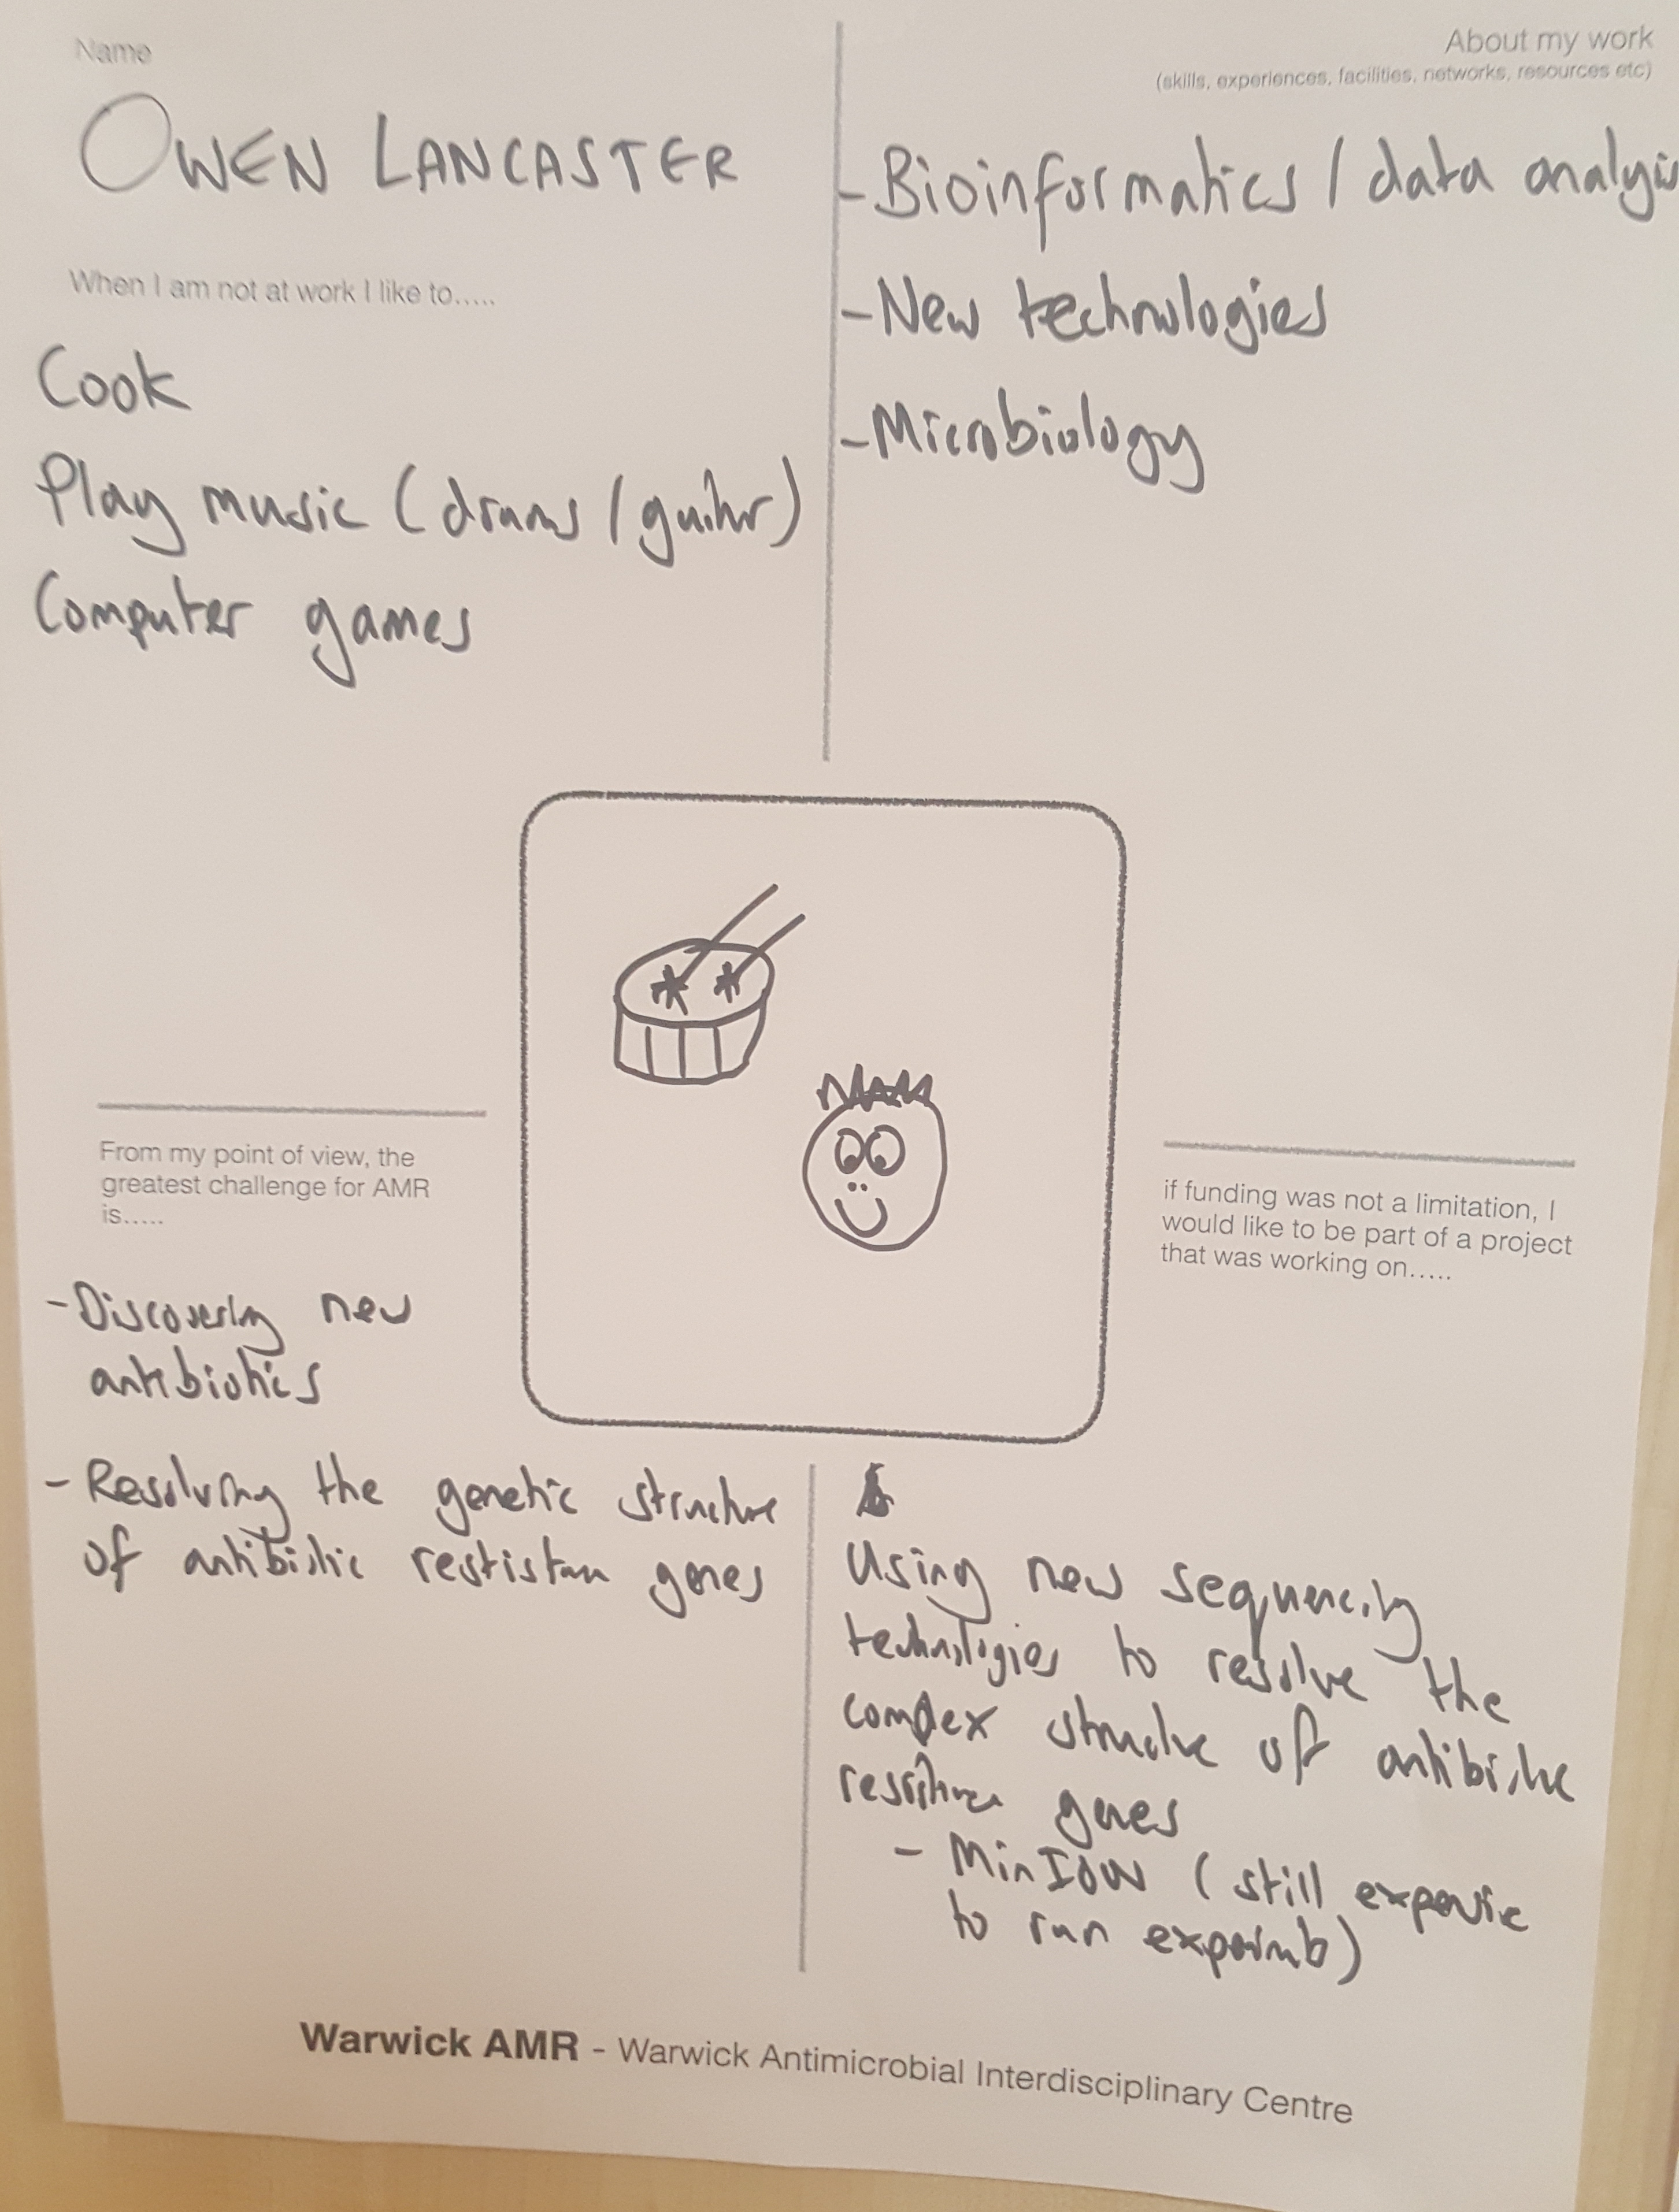 Name
OWEN LANCASTER
When I am not at work I like to.....
Cook
Play music (drums / guitar)
Computer games
About my work
(skills, experiences, facilities, networks, resources etc)
- Bioinformatics / data analysis
- New technologies
- Microbiology
From my point of view, the
greatest challenge for AMR
is.....
- Discovering new
antibiotics
- Resolving the genetic structure
of antibiotic restistan genes
if funding was not a limitation, I
would like to be part of a project
that was working on.....
Using new sequencing
technologies to resolve the
complex structure of antibiotic
resistance genes
- MinION (still expensive
to run experiments)
Warwick AMR - Warwick Antimicrobial Interdisciplinary Centre